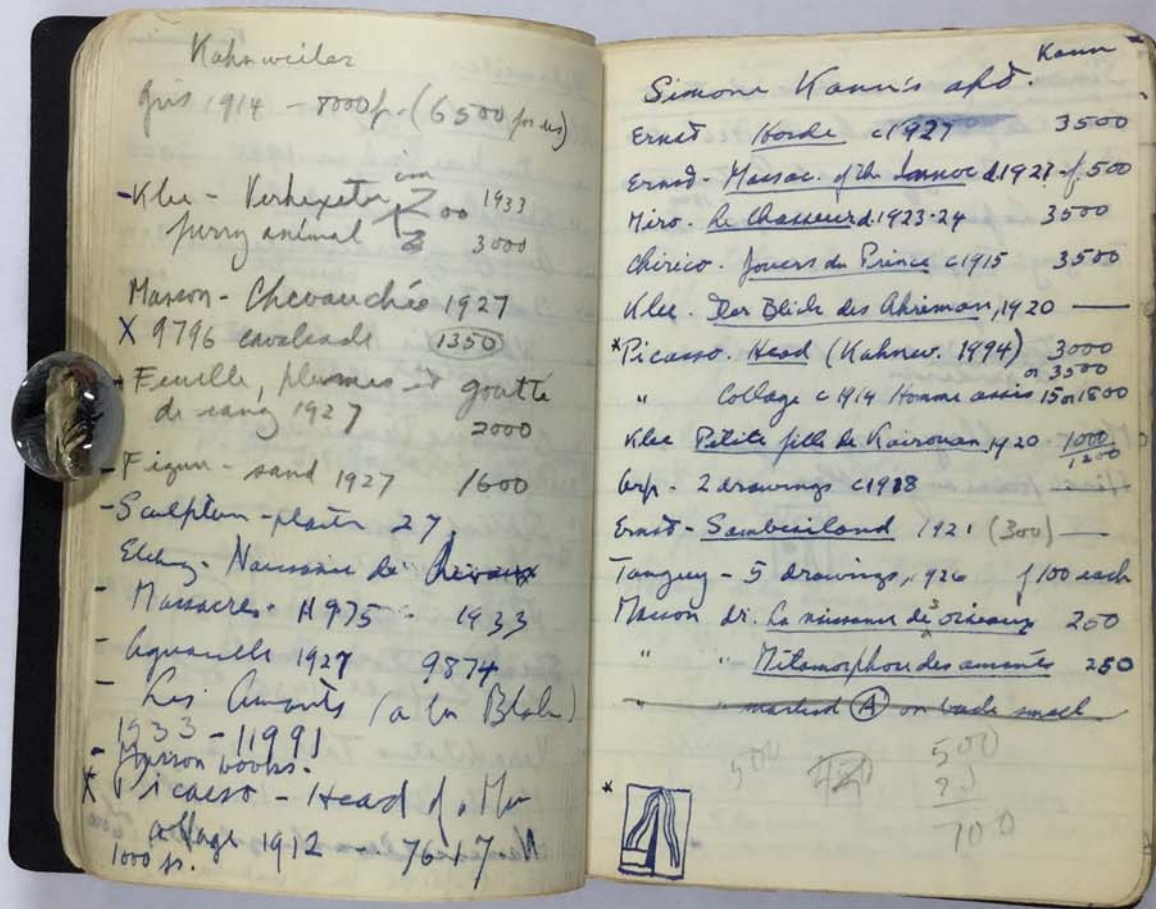 Kahnweiler
Gris 1914 - 8000 f. (6500 for us)
-Klee - Verhexter cm 1933
furry animal 3000
Masson - Chevauchée 1927
X 9796 cavalcade 1350
- Feuille, plumes et goutte
de sang 1927
2000
- Figure - sand 1927 1600
- Sculpture - plaster 27
Etching - Naissance de
- Massacres - 11975 - 1933
- Aquarelle 1927 9874
- Les Amants (a la Blake)
1933 - 11991
- Masson books.
X Picasso - Head of a Man
collage 1912 - 7617
1000 fr.
Kann
Simone Kann's apt.
Ernst Horde c1927 3500
Ernst - Massac. of the Innoc d.1921 - f. 500
Miro. Le Chasseur d.1923-24 3500
Chirico. Jouers du Prince c1915 3500
Klee. Der Blick des Ahriman, 1920 —
*Picasso. Head (Kahnw. 1994) 3000
or 3500
" Collage c 1914 Homme assis 15 or 1800
Klee Petite fille de Kairouan, 1920 1000
1200
Arp - 2 drawings c1918 —
Ernst - Sambesiland 1921 (300) —
Tanguy - 5 drawings, 1926 f 100 each
Masson dr. La naissance des oiseaux 250
" " Métamorphose des amants 250
" marked A on back small
500 500
700
*